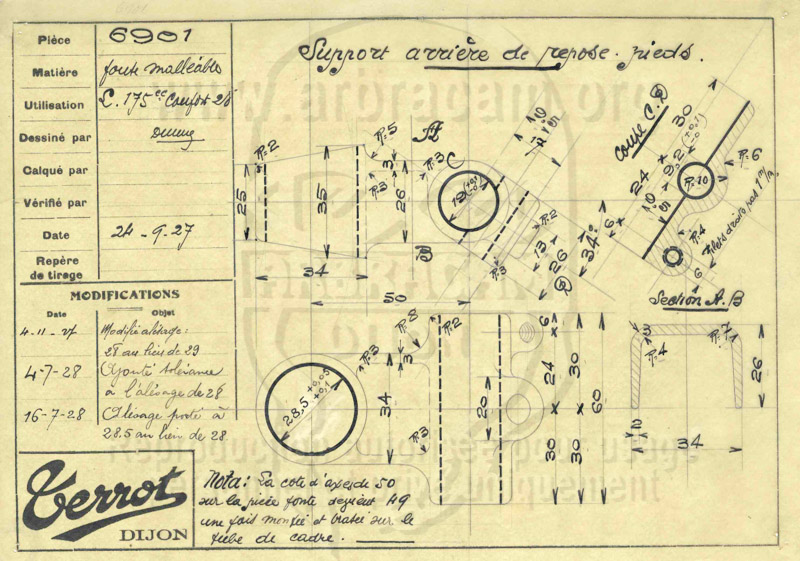 Pièce 6901
Matière fonte malléable
Utilisation L. 175cc Confort 28
Dessiné par
Calqué par
Vérifié par
Date 24-9-27
Repère de tirage
MODIFICATIONS
Date Objet
4-11-27 Modifié alésage:
28 au lieu de 29
4-7-28 Ajouté tolérance
à l'alésage de 28
16-7-28 Alésage porté à
28.5 au lieu de 28
Terrot
DIJON
Support arrière de repose-pieds.
Nota: La cote d'axe de 50
sur la pièce fonte devient 49
une fois montée et brasée sur le
tube de cadre.
R=2
R=5
A
3
R=3
C
R=3
25
35
26
12
B
R=3
R=2
34
50
13
26
D
34
6
Coupe C.D
30
24
9,2
R=10
R=6
5
R=4
6
Filets droits pas 1 m/m
Section A.B
3
R=7
R=4
26
34
R=8
R=2
R=3
3
34
28,5 +0,05
+0,1
R=3
20
6
24
30
30
30
60
www.arbracam.org
Reproduction autorisée pour usage
uniquement